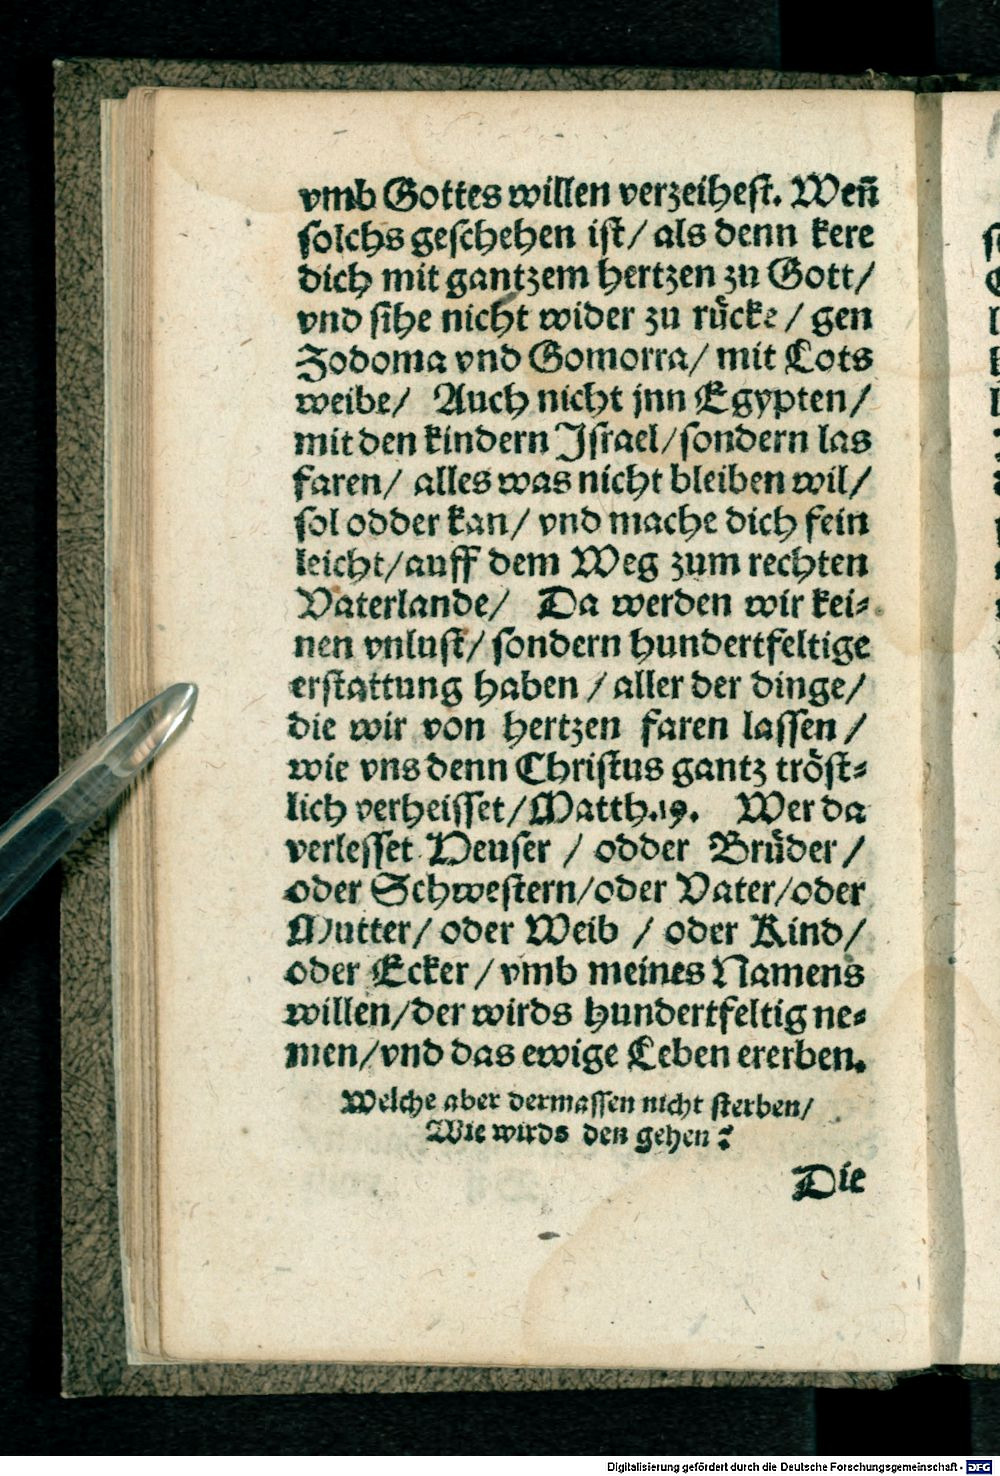 vmb Gottes willen verzeihest. Weñ
solchs geschehen ist/ als denn kere
dich mit gantzem hertzen zu Gott/
vnd sihe nicht wider zu rücke/ gen
Zodoma vnd Gomorra/ mit Lots
weibe/ Auch nicht jnn Egypten/
mit den kindern Jsrael/ sondern las
faren/ alles was nicht bleiben wil/
sol odder kan/ vnd mache dich fein
leicht/ auff dem Weg zum rechten
Vaterlande/ Da werden wir kei⸗
nen vnlust/ sondern hundertfeltige
erstattung haben/ aller der dinge/
die wir von hertzen faren lassen/
wie vns denn Christus gantz tröst⸗
lich verheisset/ Matth.19. Wer da
verlesset Heuser/ odder Brüder/
oder Schwestern/ oder Vater/ oder
Mutter/ oder Weib/ oder Kind/
oder Ecker/ vmb meines Namens
willen/ der wirds hundertfeltig ne⸗
men/ vnd das ewige Leben ererben.
Welche aber dermassen nicht sterben/
Wie wirds den gehen?
Die
Digitalisierung gefördert durch die Deutsche Forschungsgemeinschaft - DFG